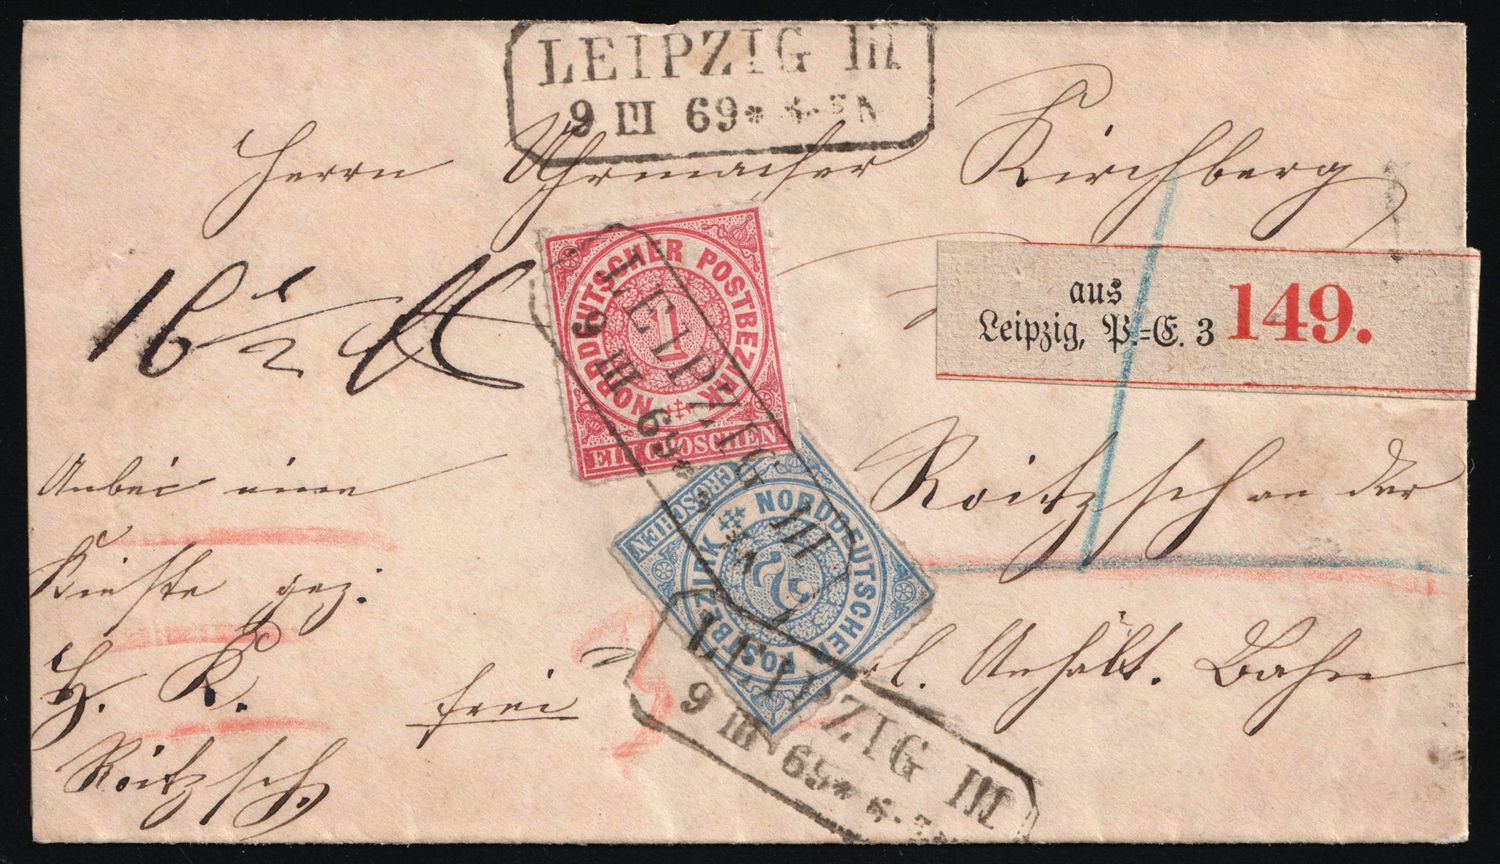 LEIPZIG III
9 III 69*
Herrn Uhrmacher Kirchberg
16 1/2 ℔
aus
Leipzig, P.-E. 3 149.
NORDDEUTSCHER POSTBEZIRK
1
EIN GROSCHEN
LEIPZIG III
9 III 69*
Anbei eine
Kiste gez.
H. K.
Roitzsch.
frei
NORDDEUTSCHER POSTBEZIRK
2
GROSCHEN
Roitzsch an der
Anhalt. Bahn
LEIPZIG III
9 III 69*